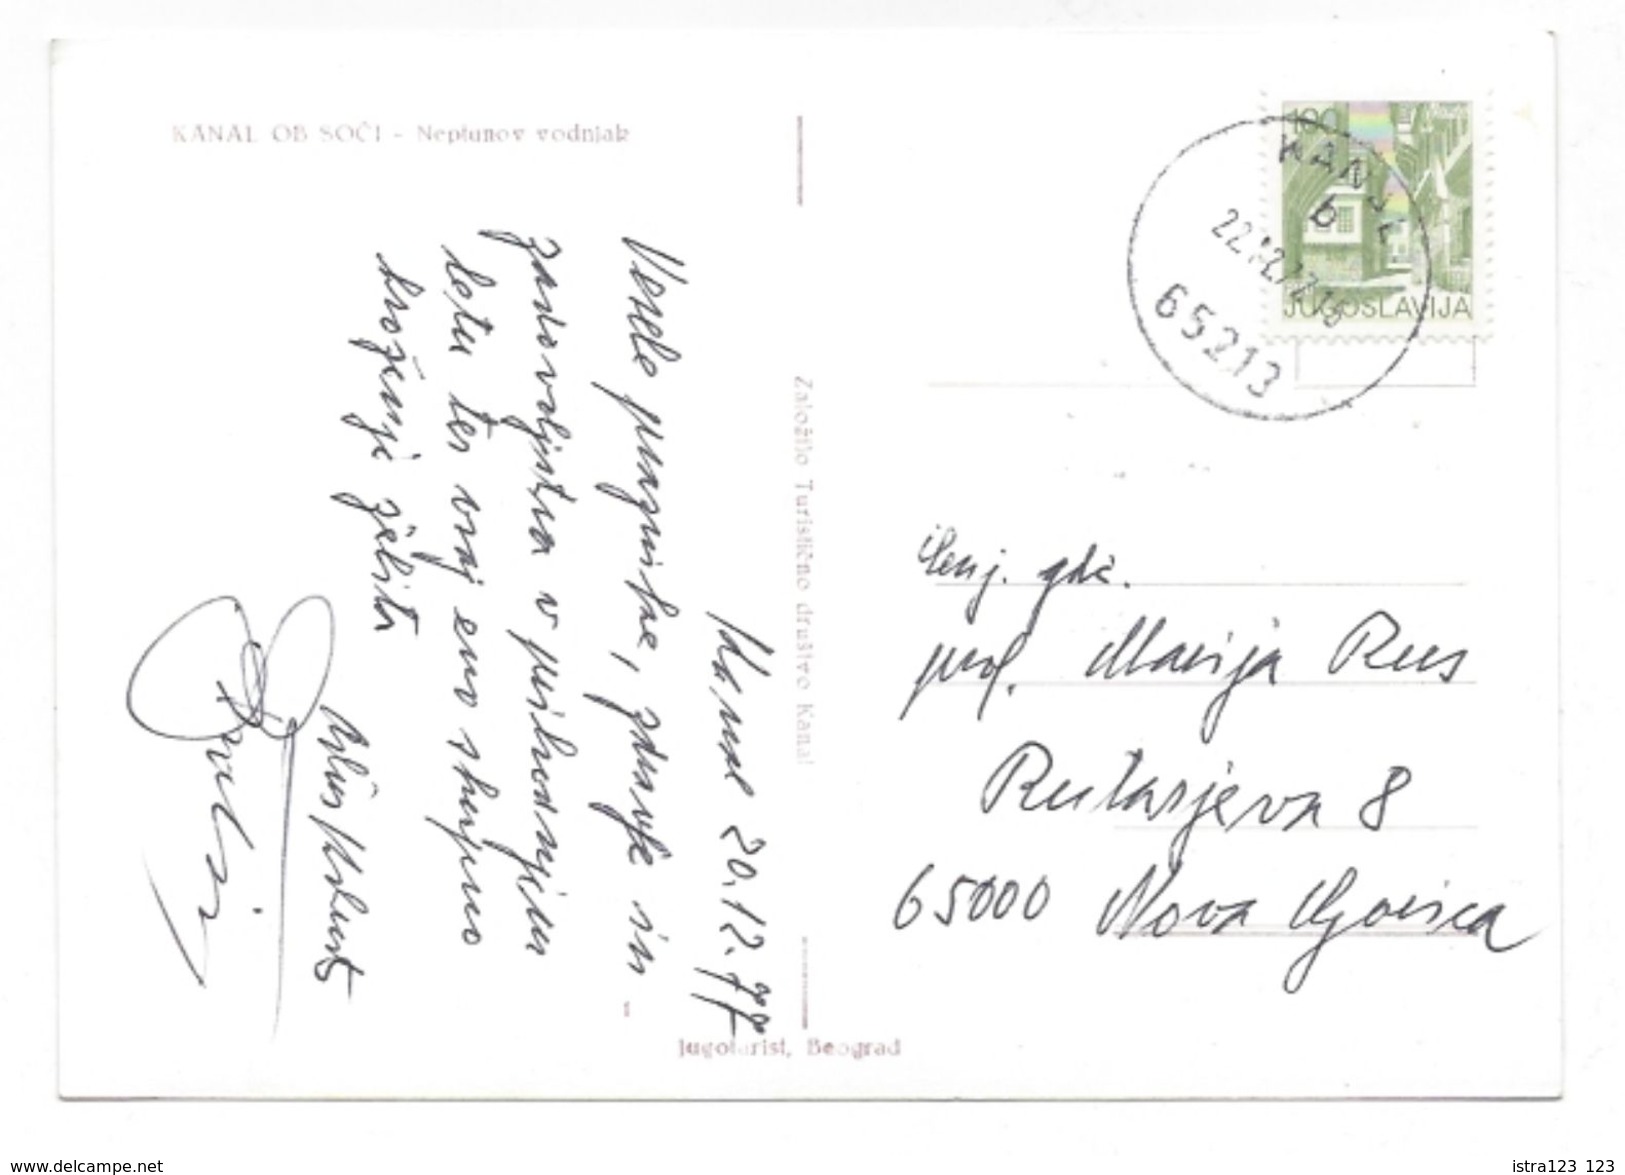 KANAL OB SOČI - Neptunov vodnjak
Kanal 20.12.77
Vesele praznike, zdravje in
zadovoljstva v prihodnjem
letu ter vsaj eno skupno
kroženje želita
Založilo Turistično društvo Kanal
Jugoturist, Beograd
100
JUGOSLAVIJA
KANAL
b
22.12.77
65213
prof. Marija Rus
Rutarjeva 8
65000 Nova Gorica
www.delcampe.net
istra123 123